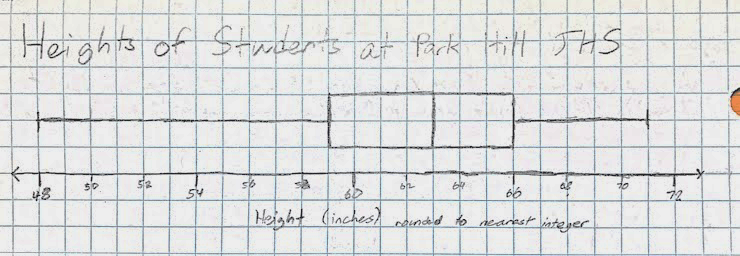 Heights of Students at Park Hill JHS
48 50 52 54 56 58 60 62 64 66 68 70 72
Height (inches) rounded to nearest integer